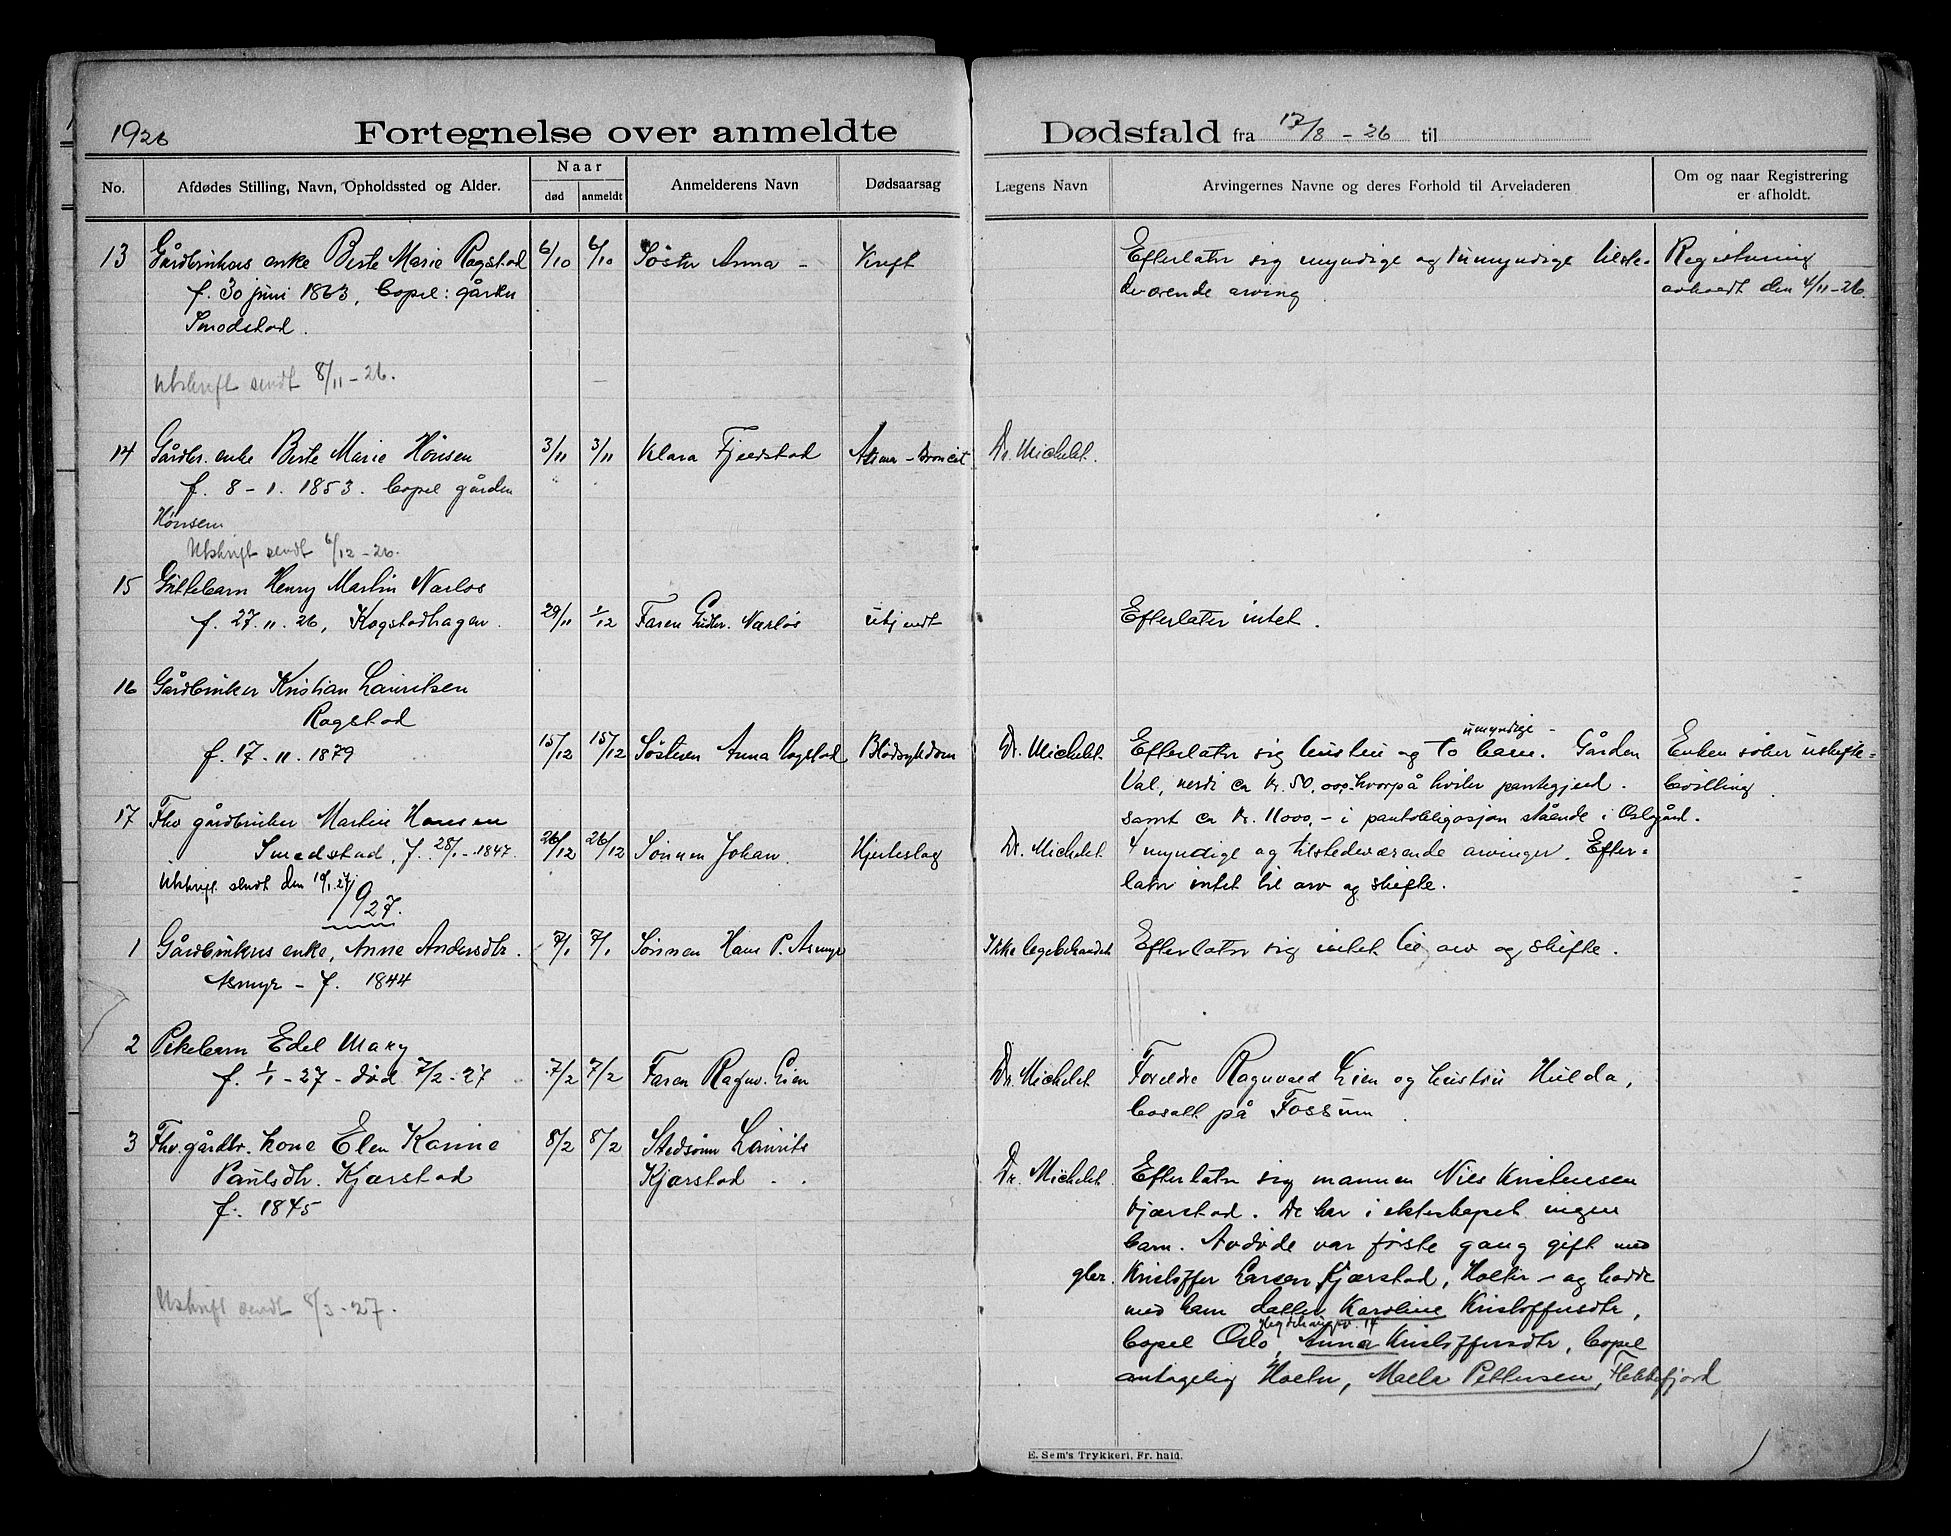 1926 Fortegnelse over anmeldte Dødsfald fra 17/8 - 26 til
No. Afdødes Stilling, Navn, Opholdssted og Alder. Naar død anmeldt Anmelderens Navn Dødsaarsag Lægens Navn Arvingernes Navne og deres Forhold til Arveladeren Om og naar Registrering er afholdt.
13 Gårdbrukers enke Berte Marie Ragstad 6/10 6/10 Søster Anna - Kreft Efterlater sig myndige og umyndige tilste- Registrering
f. 30 juni 1863, bopel: gården deværende arving. avholdt den 4/11-26.
Smedstad.
Utskrift sendt 8/11-26.
14 Gårdbr. enke Berte Marie Hønsen 3/11 3/11 Klara Fjeldstad Astma - Broncit Dr. Michelet.
f. 8-1. 1853. bopel gården
Hønsen
Utskrift sendt 6/12-26.
15 Guttebarn Henry Martin Narløs
f. 27.11.26, Kogstadhagen. 29/11 1/12 Faren Narløs ukjendt Efterlater intet.
16 Gårdbruker Kristian Lauritsen
Ragstad
umyndige
f. 17-11. 1879 15/12 15/12 Søsteren Anna Ragstad Blodsykdom Dr. Michelet. Efterlater sig hustru og to barn. Gården Enken søker uskifte-
Val, verdi ca kr. 50,000, hvorpå hviler pantegjeld. bevilling.
samt ca kr. 11000,- i pantobligasjon stående i Oslogård.
17 Fhv gårdbruker Martin Hansen
Smedstad, f. 28/1-1847. 26/12 26/12 Sønnen Johan. Hjerteslag Dr. Michelet. 4 myndige og tilstedeværende arvinger. Efter-
Utskrift sendt den 10/1 27 later intet til arv og skifte.
1927.
1 Gårdbrukers enke, Anne Andersdtr. 7/1 7/1 Sønnen Hans P. Asmyr Ikke legebehandlet Efterlater sig intet til arv og skifte.
Asmyr - f. 1844
2 Pikebarn Edel Mary
f. 1/1-27 - død 7/2-27 7/2 7/2 Faren Ragnv. Lien Dr. Michelet Foreldre Ragnvald Lien og hustru Hulda,
bosatt på Fossum.
3 Fhv. gårdbr. kone Elen Karine 8/2 8/2 Stedsønn Laurits
Paulsdtr. Kjærstad Kjærstad Dr. Michelet. Efterlater sig mannen Nils Kristensen
f. 1845 Kjærstad. De har i ekteskapet ingen
barn. Avdøde var første gang gift med
gbr. Kristoffer Larsen Kjærstad, Holter - og hadde
Utskrift sendt 8/3-27. med ham datter Karoline Kristoffersdtr,
bopel Oslo, Anna Kristoffersdtr, bopel
antagelig Holter, Maela Pettersen, Flekkefjord
E. Sem's Trykkeri, Fr.hald.